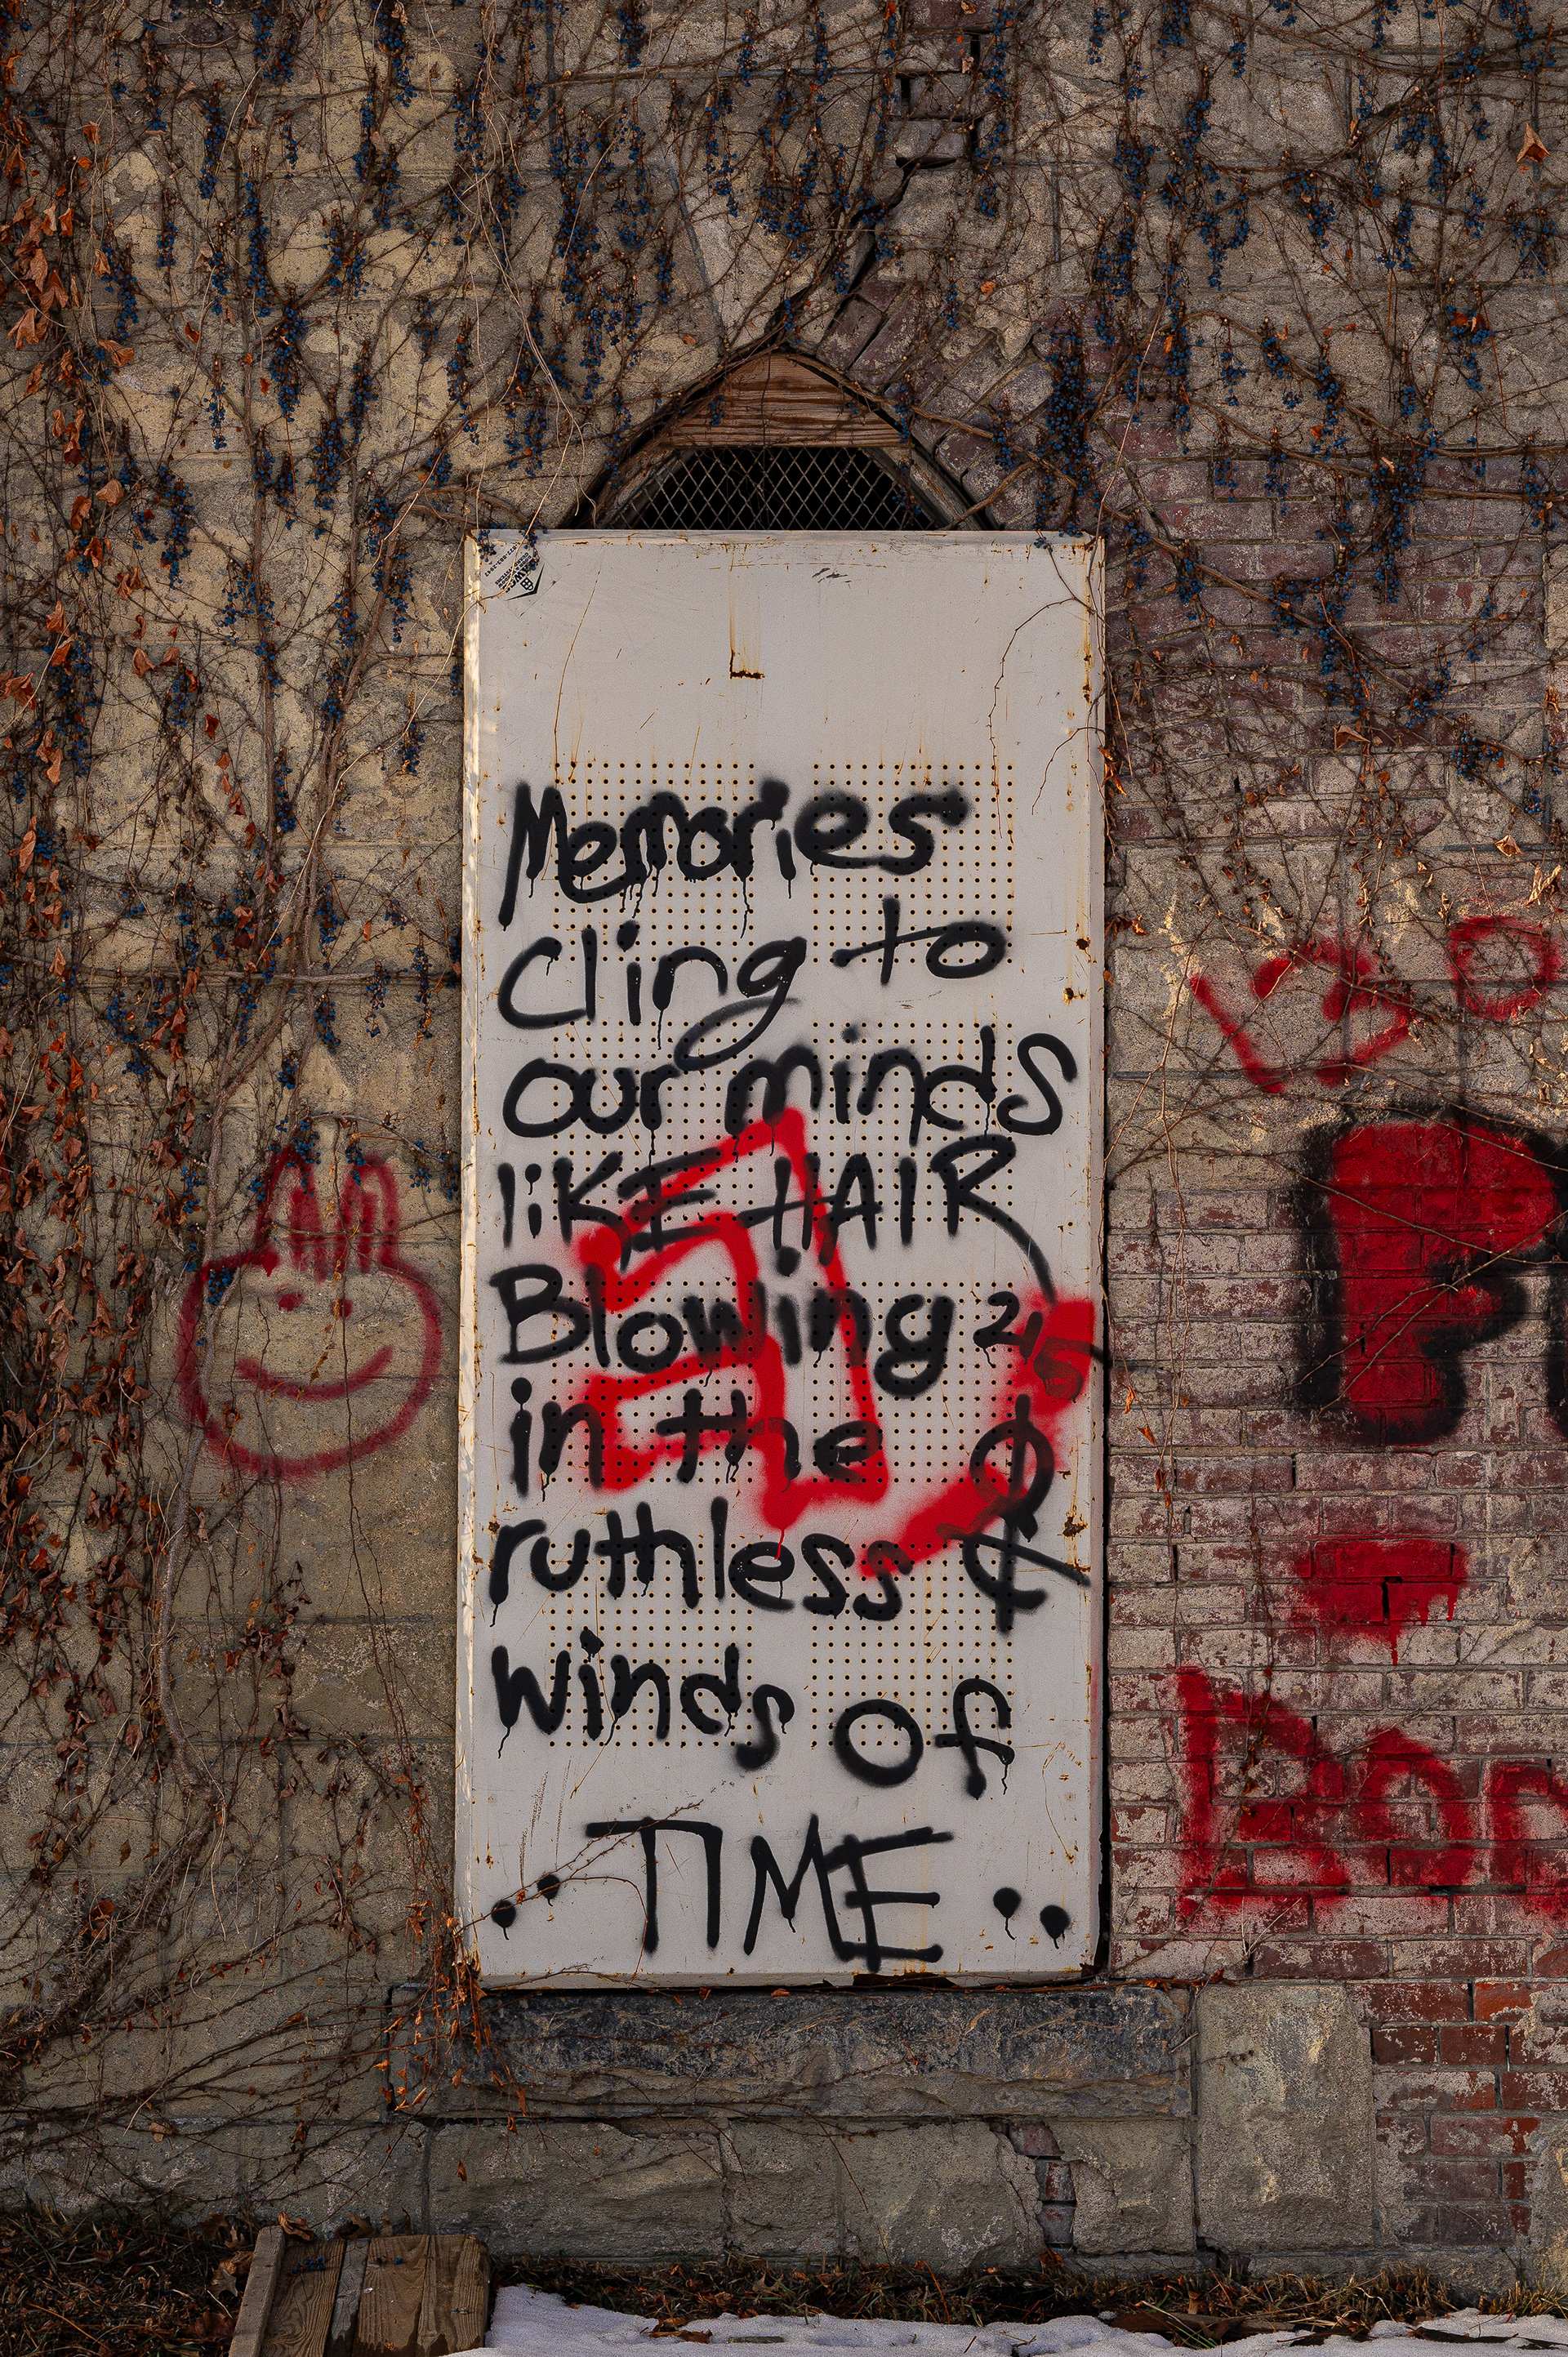 Memories
Cling to
our minds
liKE HAIR
Blowing
in the
ruthless
Winds of
TIME